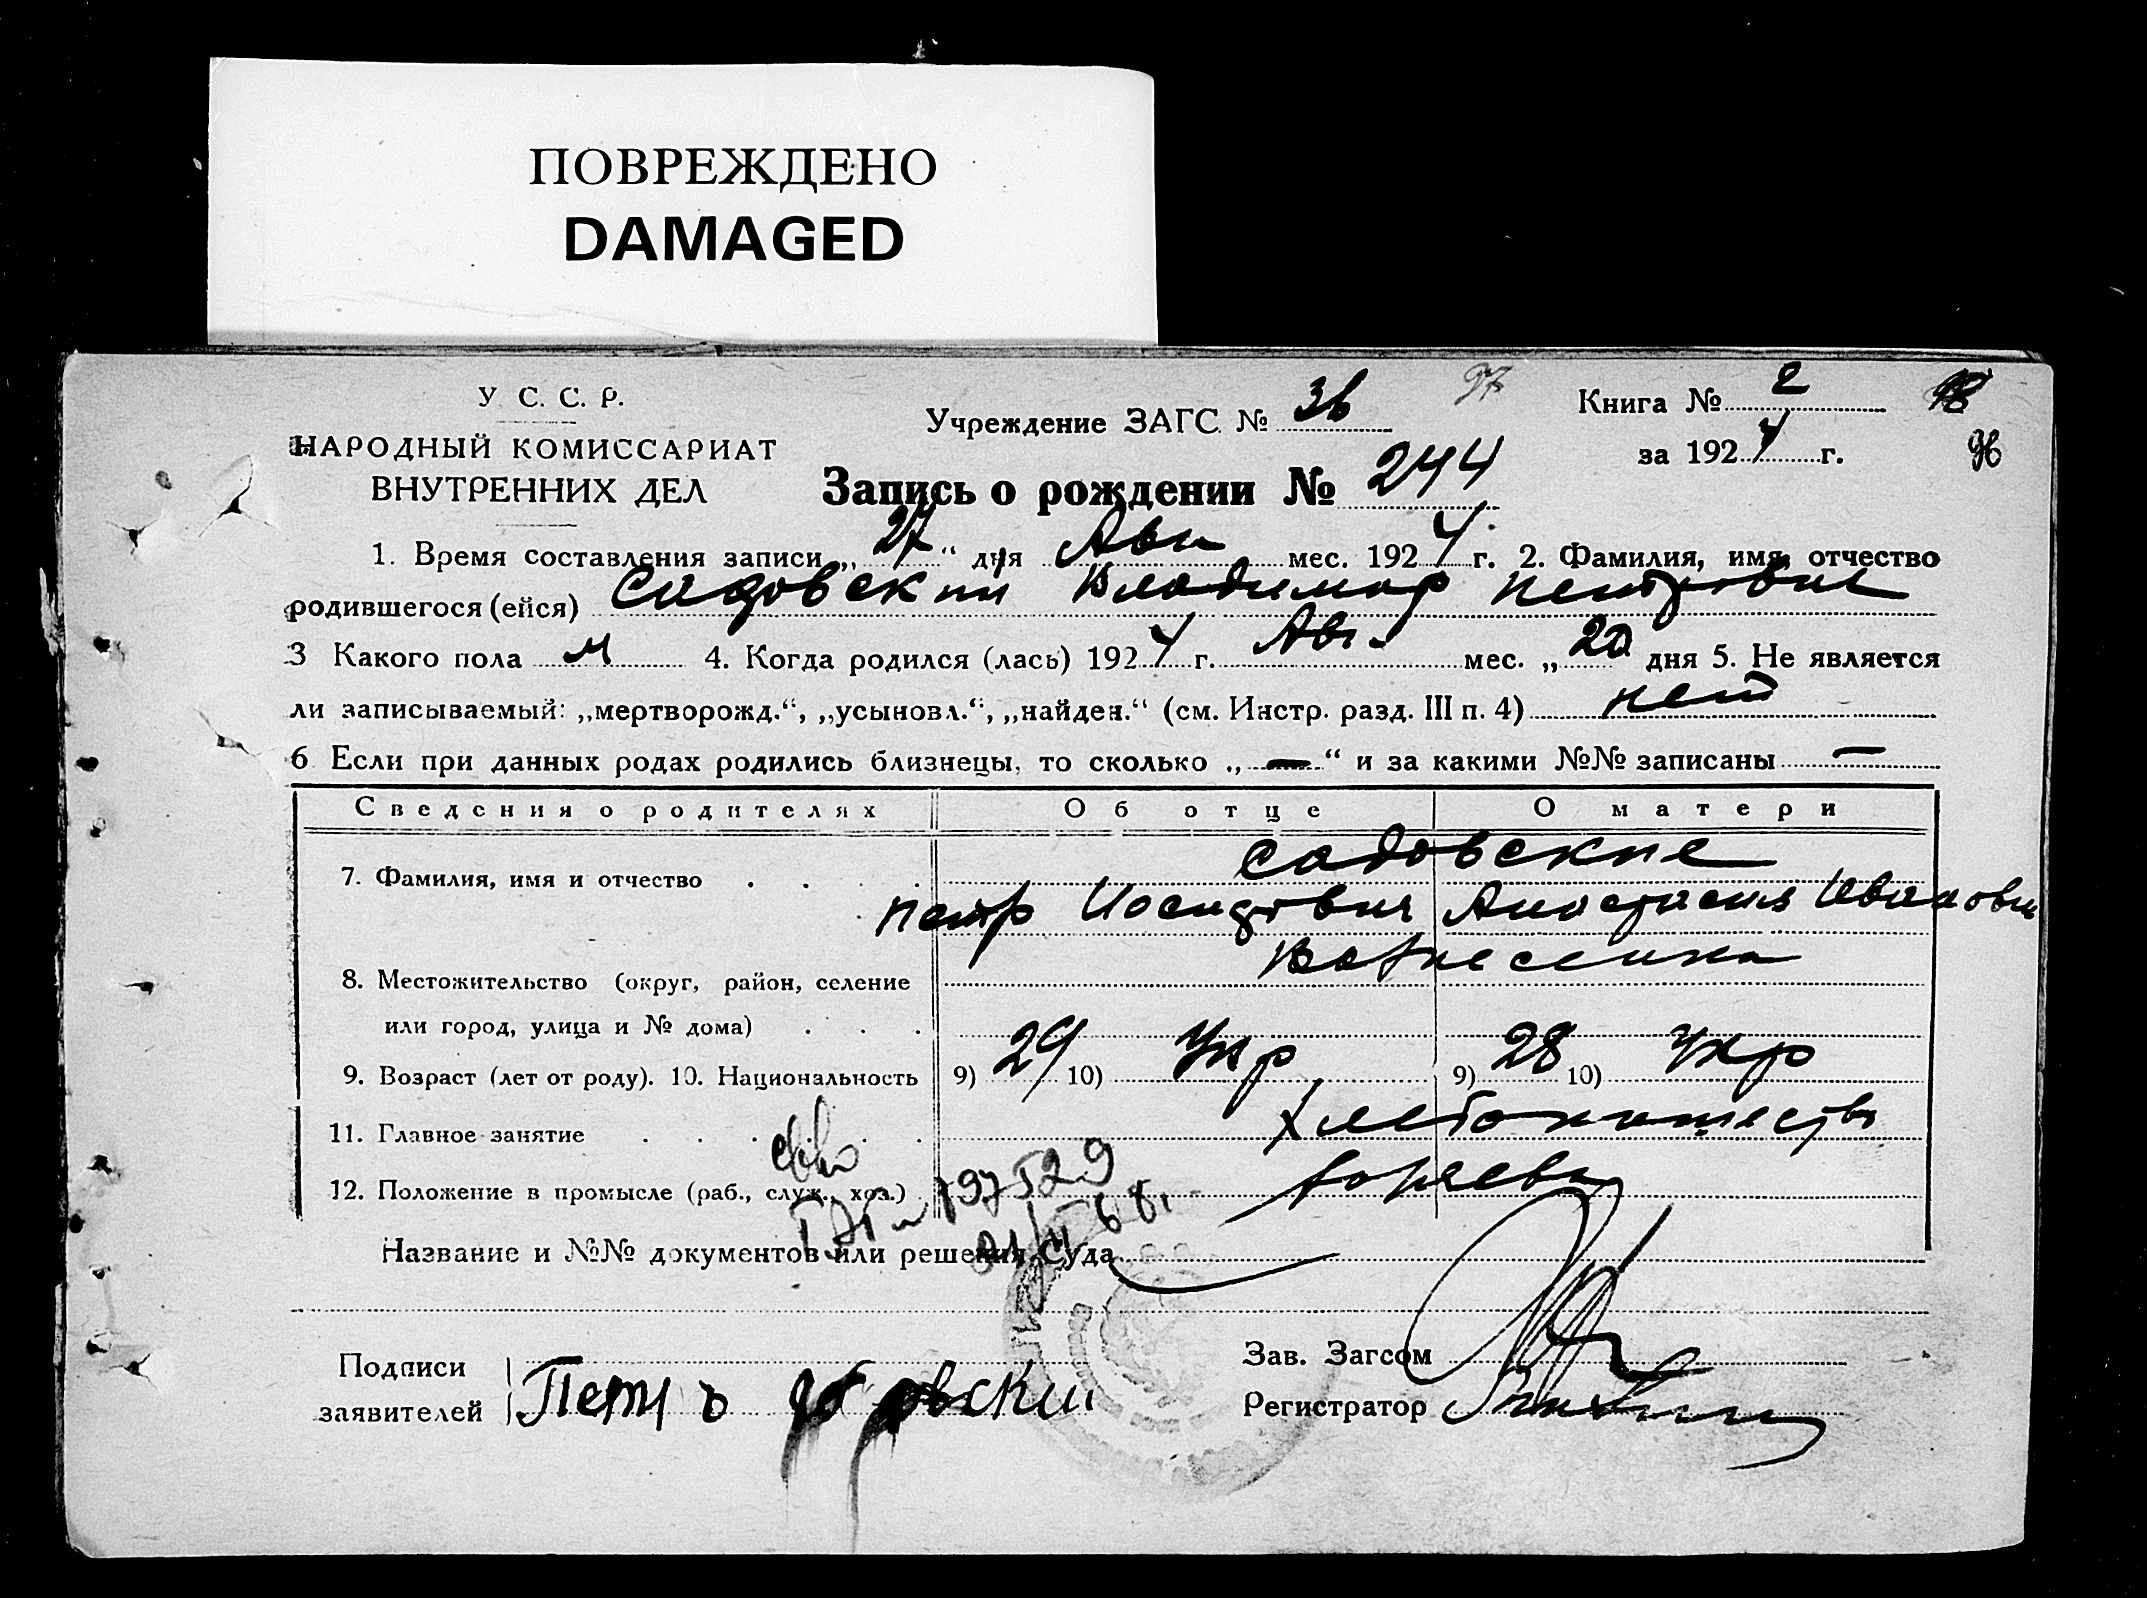 ПОВРЕЖДЕНО
DAMAGED
У. С. С. Р.
НАРОДНЫЙ КОМИССАРИАТ
ВНУТРЕННИХ ДЕЛ
Учреждение ЗАГС №36
97
Книга № 2
за 1924 г.
96
Запись о рождении № 244
1. Время составления записи „27“ дня Авг мес. 1924 г. 2. Фамилия, имя, отчество
родившегося (ейся) Садовский Владимир Петрович
3 Какого пола м 4. Когда родился (лась) 1924 г. Авг. мес. „20 дня 5. Не является
ли записываемый: „мертворожд.“, „усыновл.“, „найден.“ (см. Инстр. разд. III п. 4) нет
6 Если при данных родах родились близнецы, то сколько „—“ и за какими №№ записаны —
Сведения о родителях Об отце О матери
Садовские
7. Фамилия, имя и отчество
Петр Иосифович Анастасия Ивановн
Вознесенка
8. Местожительство (округ, район, селение
или город, улица и № дома)
9. Возраст (лет от роду). 10. Национальность 9) 29 10) Укр 9) 28 10) Укр
11. Главное занятие Хлебопашество
12. Положение в промысле (раб., служ., хоз.)
Название и №№ документов или решения Суда
Подписи
заявителей Петръ
Зав. Загсом
Регистратор